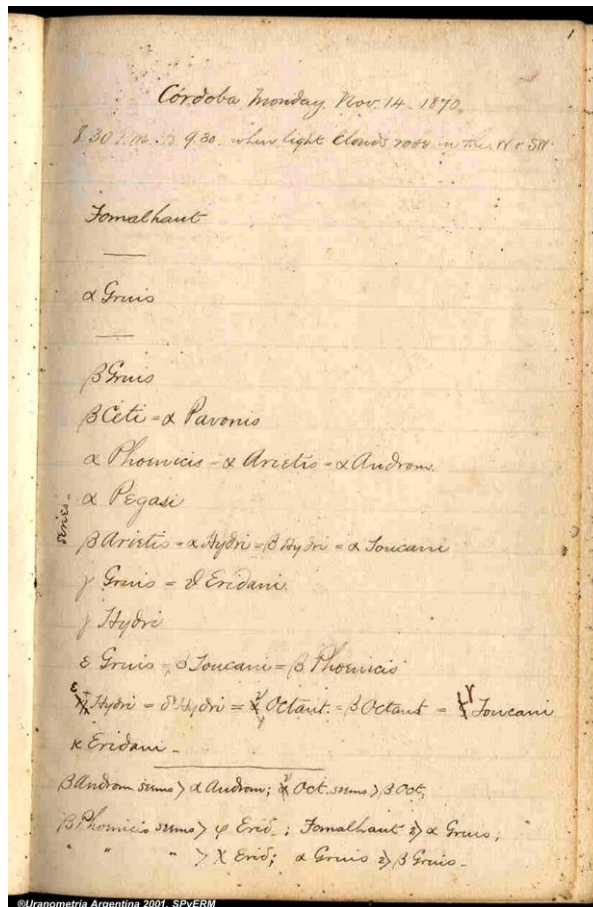 1
Córdoba, Monday, Nov. 14. 1870.
8.30 P.M. to 9.30. when light clouds rose in the W or SW.
Fomalhaut
α Gruis
β Gruis
β Ceti = α Pavonis
α Phoenicis = α Arietis = α Androm.
α Pegasi
series -
β Arietis = α Hydri = β Hydri = α Toucani
γ Gruis = ϑ Eridani.
γ Hydri
ε Gruis = β Toucani = β Phoenicis
ε Hydri = δ Hydri = ν Octant. = β Octant = γ Toucani
κ Eridani -
β Androm seems > α Androm; ν Oct. seems > β Oct.
β Phoenicis seems > φ Erid.; Fomalhaut 2> α Gruis;
" " " > χ Erid; α Gruis 2> β Gruis -
®Uranometría Argentina 2001, SPyERM